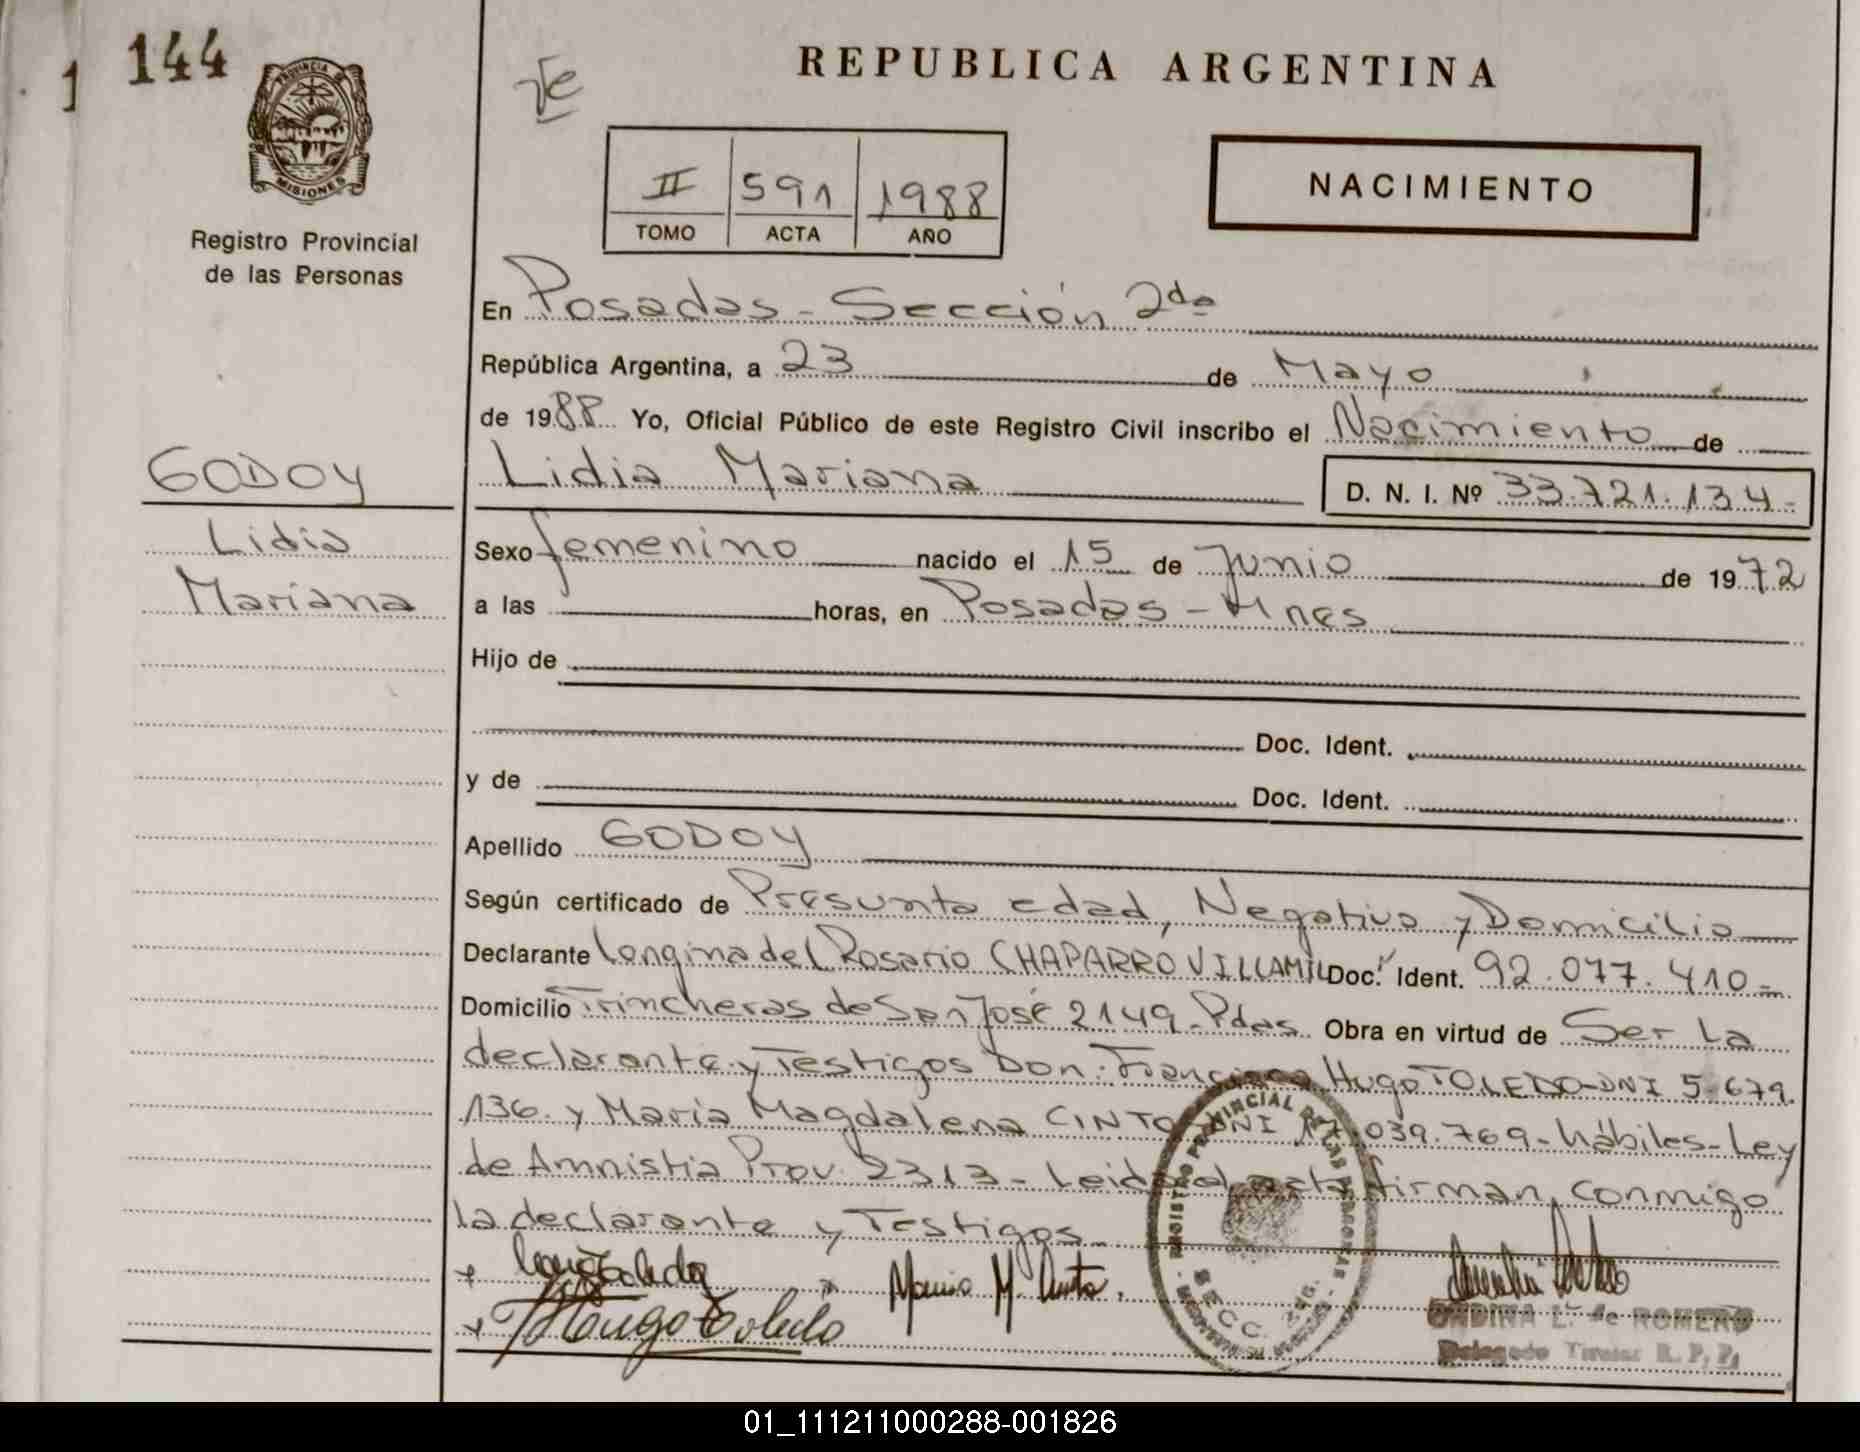 1 144
REPUBLICA ARGENTINA
PROVINCIA DE
MISIONES
Registro Provincial
de las Personas
II 591 1988
TOMO ACTA AÑO
NACIMIENTO
En Posadas - Sección 2da
República Argentina, a 23 de Mayo
de 1988 Yo, Oficial Público de este Registro Civil inscribo el Nacimiento de
GODOY
Lidia Mariana D. N. I. Nº 33.721.134-
Lidia
Mariana
Sexo femenino nacido el 15 de Junio de 1972
a las horas, en Posadas - Mnes
Hijo de
Doc. Ident.
y de Doc. Ident.
Apellido GODOY
Según certificado de Presunta edad, Negativo y Domicilio
Declarante Longina del Rosario CHAPARRO VILLAMIL Doc. Ident. 92.077.410-
Domicilio Trincheras de San José 2149- Pdas. Obra en virtud de Ser la
declarante y Testigos Don: Francisco Hugo TOLEDO-DNI 5.679.
136. y María Magdalena CINTO DNI 17.039.769- hábiles- Ley
de Amnistia Prov. 2313- Leida el acta firman conmigo
la declarante y Testigos
Maria M. Cinto.
Hugo Toledo
SECC. 2
ONDINA L. de ROMERO
Delegado Titular R. P. P.
01_111211000288-001826